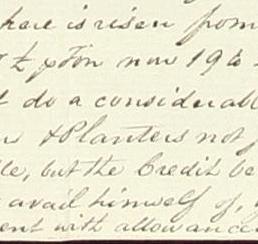 have is risen from
½ p Ton now 19½
do a considerabl
& Planters not
le, but the Credit be
avail himself of,
ent with allowance